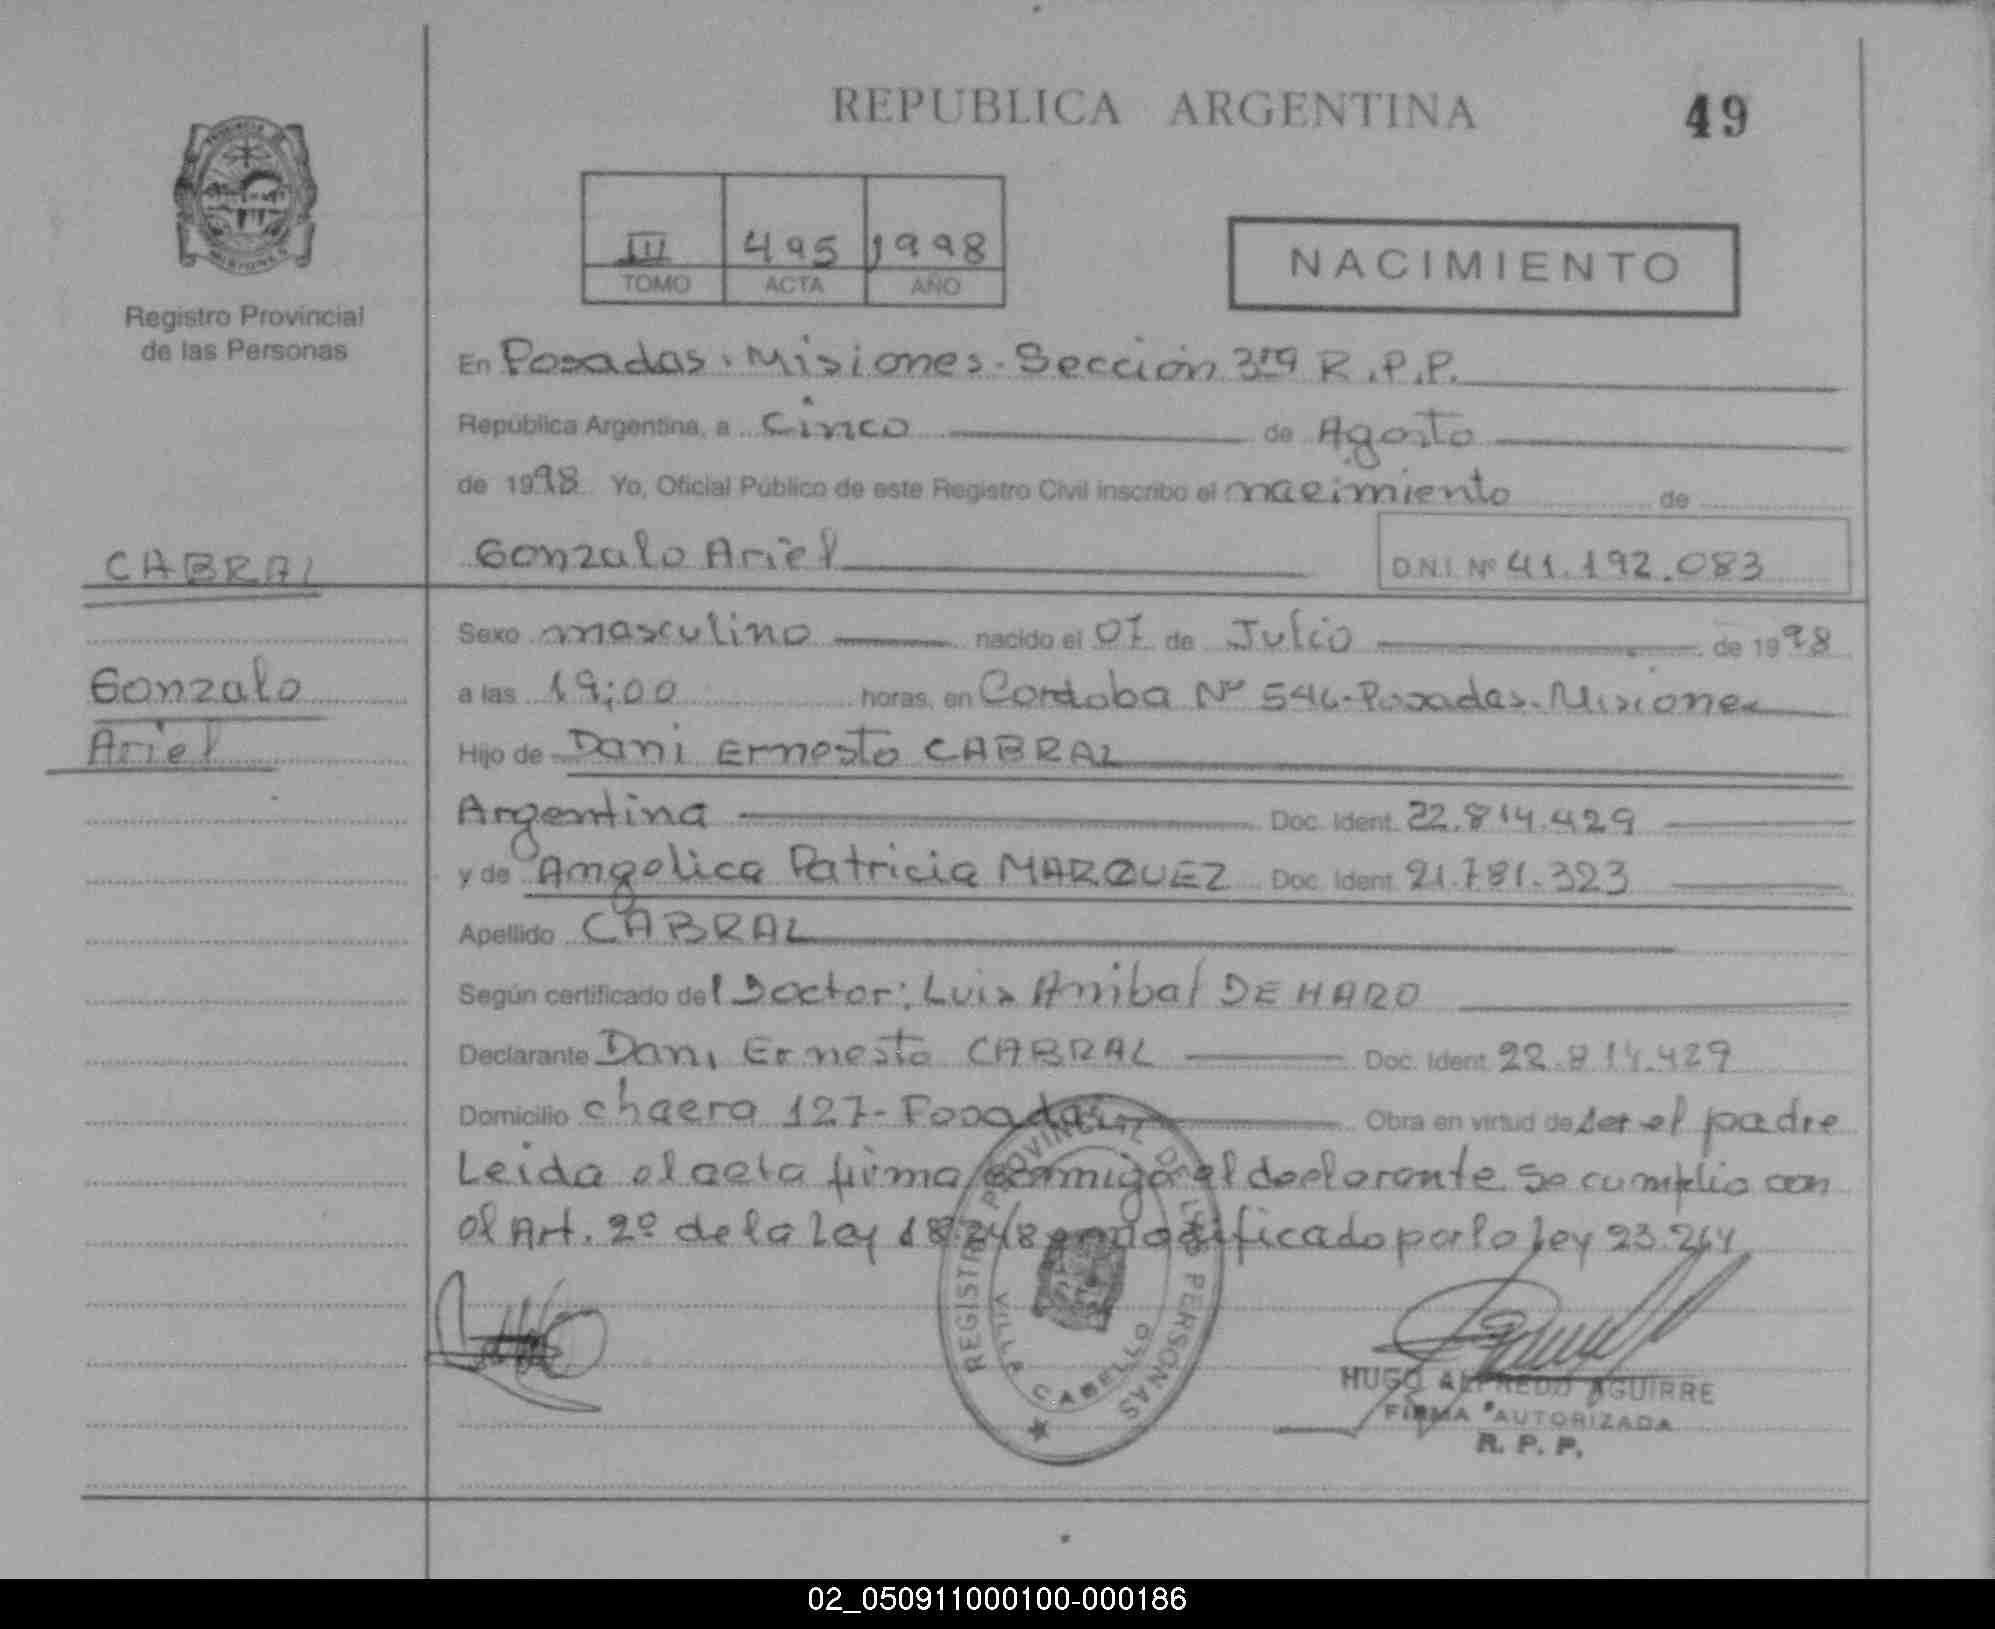 REPUBLICA ARGENTINA
49
PROVINCIA DE
MISIONES
Registro Provincial
de las Personas
III 495 1998
TOMO ACTA AÑO
NACIMIENTO
En Posadas. Misiones. Sección 3ra R.P.P.
República Argentina, a Cinco de Agosto
de 1998 Yo, Oficial Público de este Registro Civil inscribo el nacimiento de
CABRAL
Gonzalo Ariel
D.N.I. Nº 41.192.083
Sexo masculino nacido el 07 de Julio de 1998
Gonzalo
a las 19:00 horas, en Cordoba Nº 546-Posadas. Misiones
Ariel
Hijo de Dani Ernesto CABRAL
Argentina Doc. Ident. 22.814.429
y de Angelica Patricia MARQUEZ Doc. Ident. 21.781.323
Apellido CABRAL
Según certificado del Doctor: Luis Anibal DE HARO
Declarante Dani Ernesto CABRAL Doc. Ident. 22.814.429
Domicilio chacra 127-Posadas Obra en virtud de ser el padre
Leida el acta firma conmigo el declarante se cumplio con
el Art. 2º de la Ley 18.248 modificado por lo Ley 23.264
REGISTRO PROVINCIAL DE LAS PERSONAS
VILLA CABELLO
HUGO ALFREDO AGUIRRE
FIRMA AUTORIZADA
R. P. P.
02_050911000100-000186